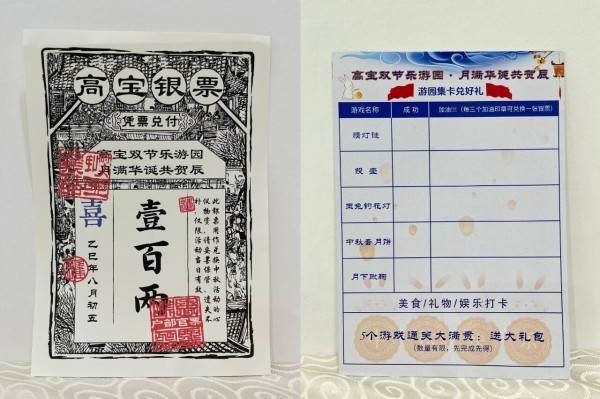 高宝银票
凭票兑付
高宝双节乐游园
月满华诞共贺辰
此银票用作兑换中秋活动的心
仪物资,请妥善保管,遗失不
补,仅限活动当日有效
壹百两
喜
乙巳年八月初五
高宝双节乐游园·月满华诞共贺辰
游园集卡兑好礼
游戏名称
成功
加油!!!(每三个加油印章可兑换一张银票)
猜灯谜
投壶
玉兔钓花灯
中秋叠月饼
月下蹴鞠
美食/礼物/娱乐打卡
5个游戏通关大满贯:送大礼包
(数量有限,先完成先得)